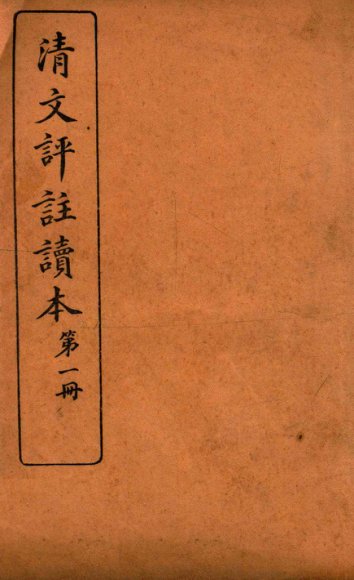 清文評註讀本
第一冊